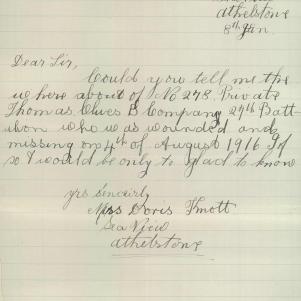 Athelstone
8th Jan
Dear Sir,
Could you tell me the
where about of No 278. Private
Thomas Clives B Company 27th Batt-
alion who was wounded and
missing on 4th of August 1916 If
so I would be only to glad to know
yrs sincerly
Miss Doris Knott
Sea View
Athelstone